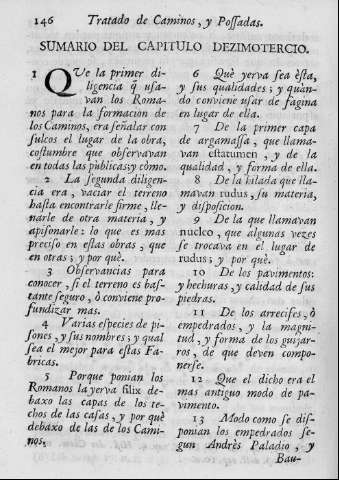 146 Tratado de Caminos, y Possadas.
SUMARIO DEL CAPITULO DEZIMOTERCIO.
1 QUe la primer di-
ligencia q̃ usa-
van los Roma-
nos para la formacion de
los Caminos, era señalar con
sulcos el lugar de la obra,
costumbre que observavan
en todas las publicas; y còmo.
2 La segunda diligen-
cia era, vaciar el terreno
hasta encontrarle firme, lle-
narle de otra materia, y
apisonarle: lo que es mas
preciso en estas obras, que
en otras; y por què.
3 Observancias para
conocer, si el terreno es bas-
tante seguro, ò conviene pro-
fundizar mas.
4 Varias especies de pi-
sones, y sus nombres; y qual
sea el mejor para estas Fa-
bricas.
5 Porque ponian los
Romanos la yerva filix de-
baxo las capas de los te-
chos de las casas, y por què
debaxo de las de los Cami-
nos.
6 Què yerva sea èsta,
y sus qualidades; y quan-
do conviene usar de fagina
en lugar de ella.
7 De la primer capa
de argamassa, que llama-
van estatumen, y de la
qualidad, y forma de ella.
8 De la kilada que lla-
mavan rudus, su materia,
y disposicion.
9 De la que llamavan
nucleo, que algunas vezes
se trocava en el lugar de
rudus; y por què.
10 De los pavimentos:
y hechuras, y calidad de sus
piedras.
11 De los arrecifes, ò
empedrados, y la magni-
tud, y forma de los guijar-
ros, de que deven compo-
nerse.
12 Que el dicho era el
mas antiguo modo de pa-
vimento.
13 Modo como se dis-
ponian los empedrados se-
gun Andrès Paladio, y
Bau-